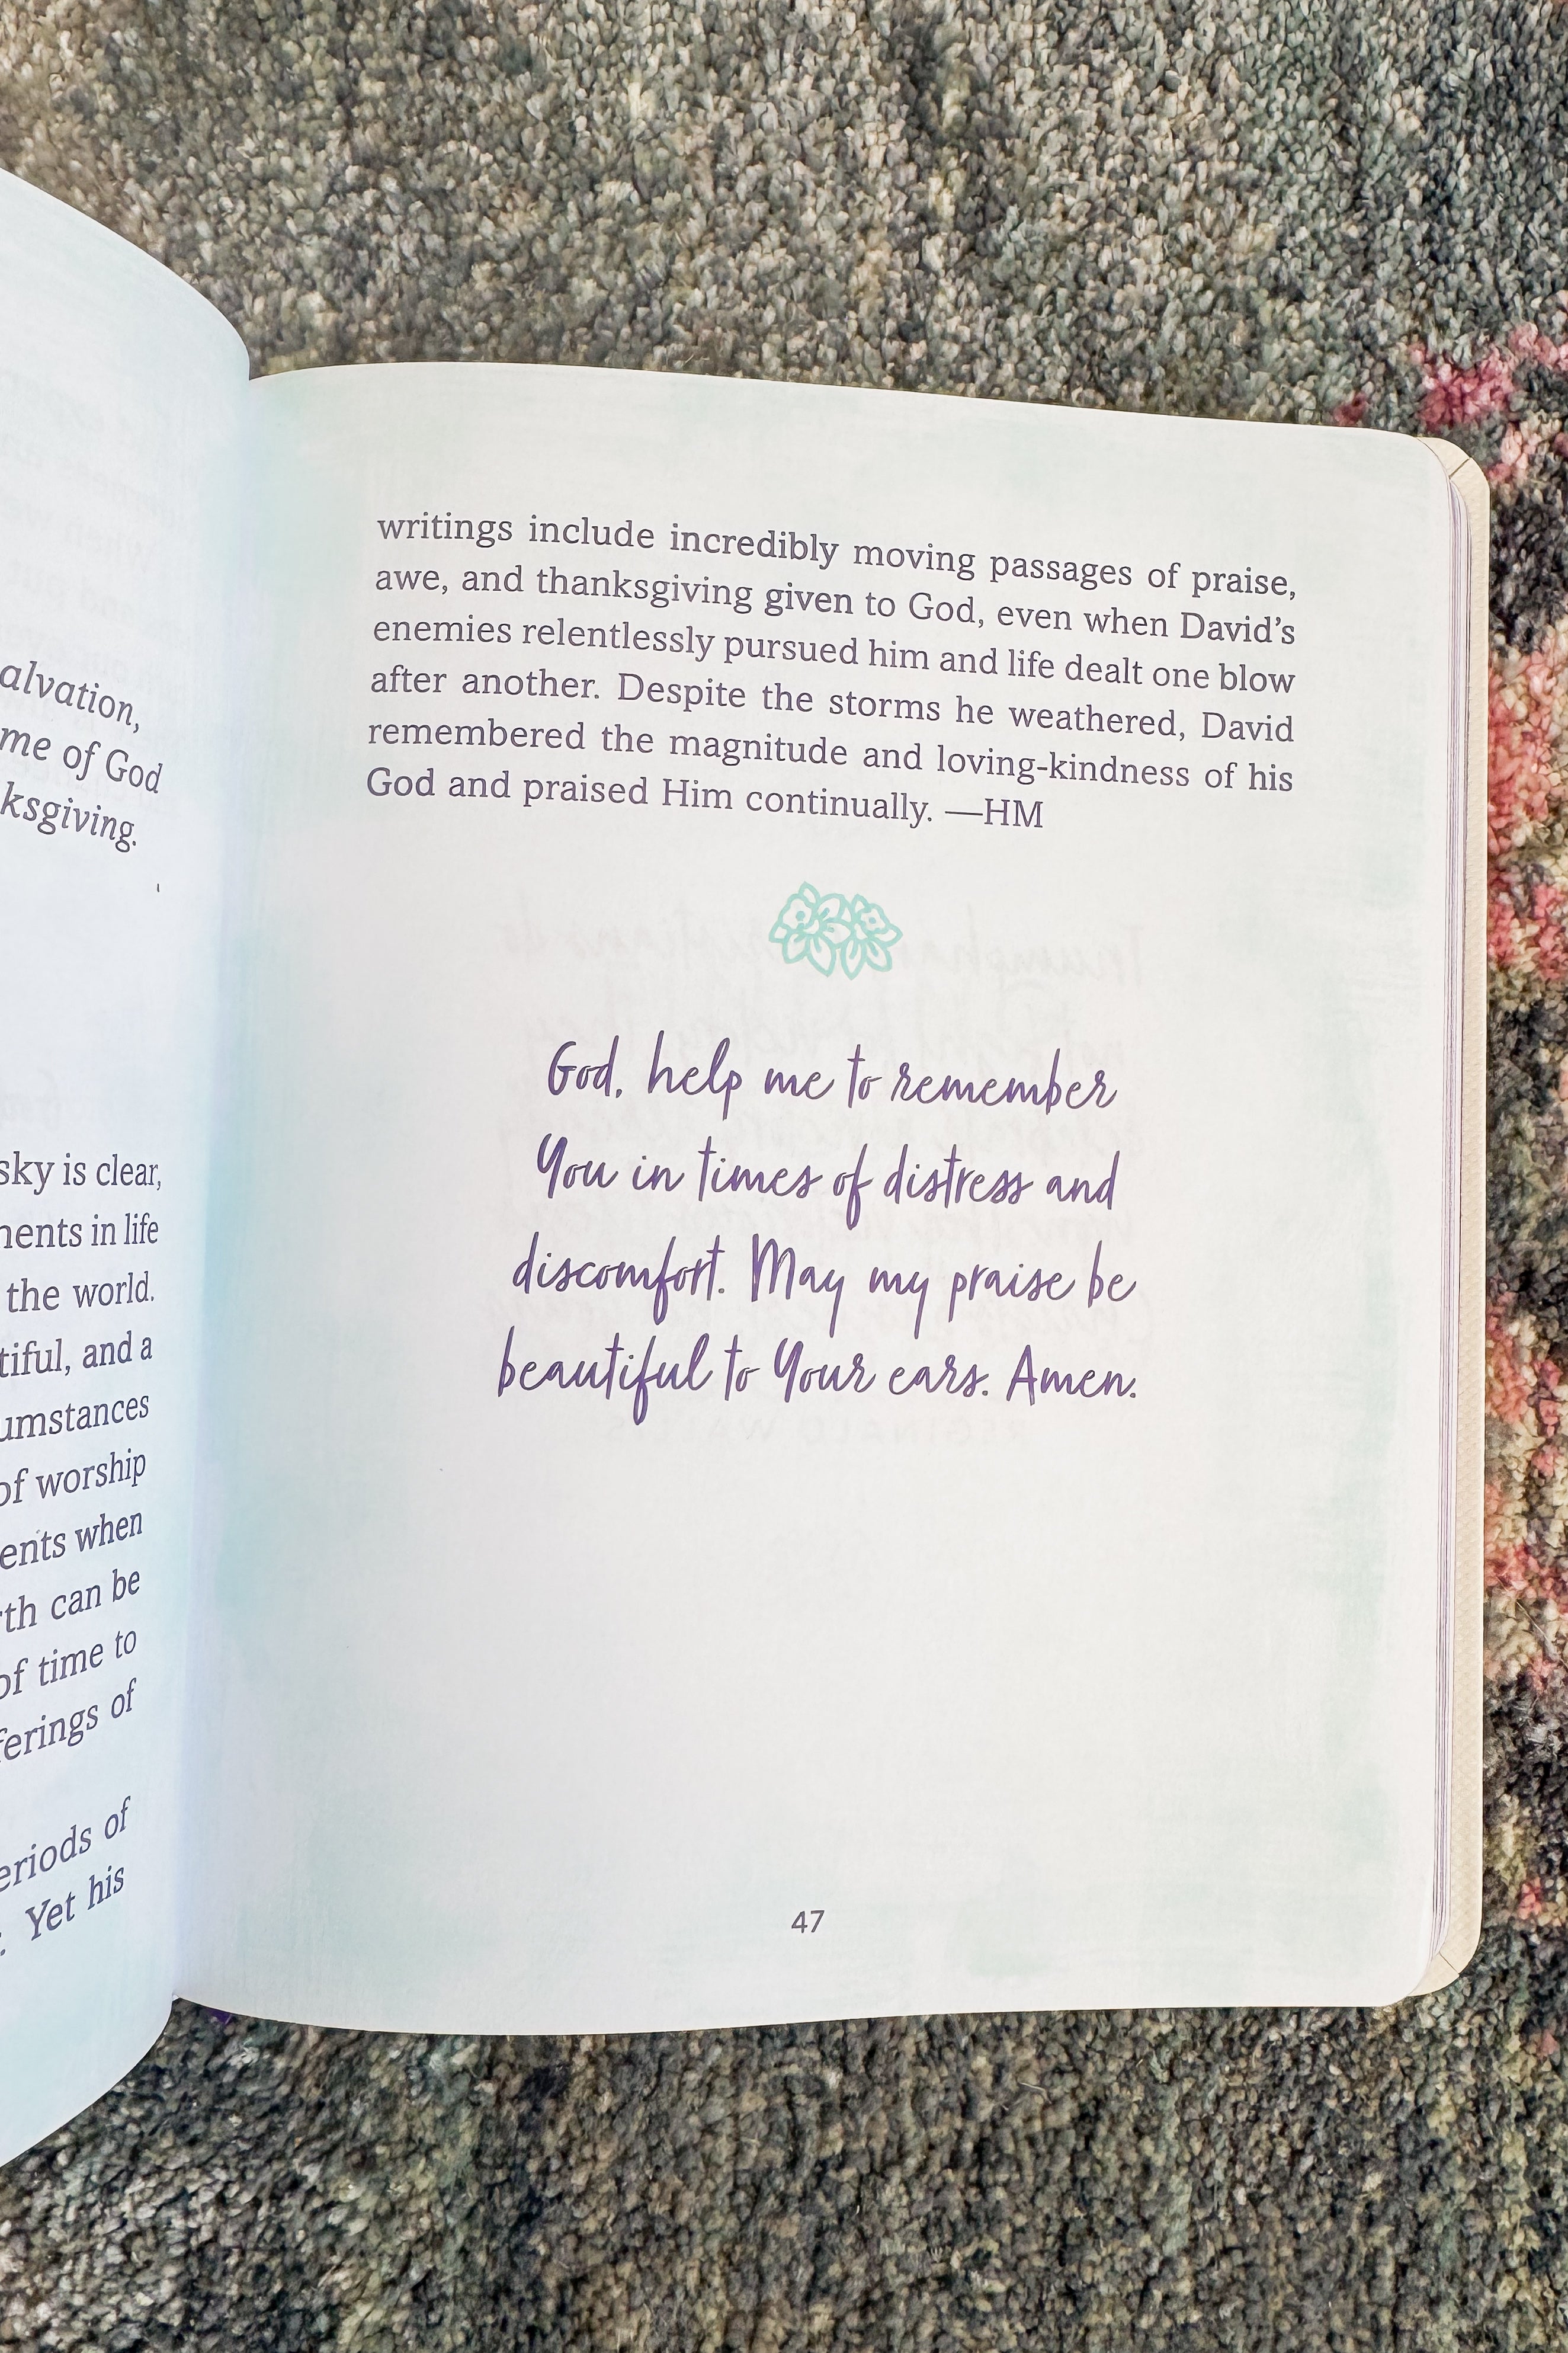 me of God
sky is clear,
in life
the world.
and a
of worship
when
can be
of time to
of
of
Yet his
writings include incredibly moving passages of praise,
awe, and thanksgiving given to God, even when David’s
enemies relentlessly pursued him and life dealt one blow
after another. Despite the storms he weathered, David
remembered the magnitude and loving-kindness of his
God and praised Him continually. —HM
God, help me to remember
You in times of distress and
discomfort. May my praise be
beautiful to Your ears. Amen.
47